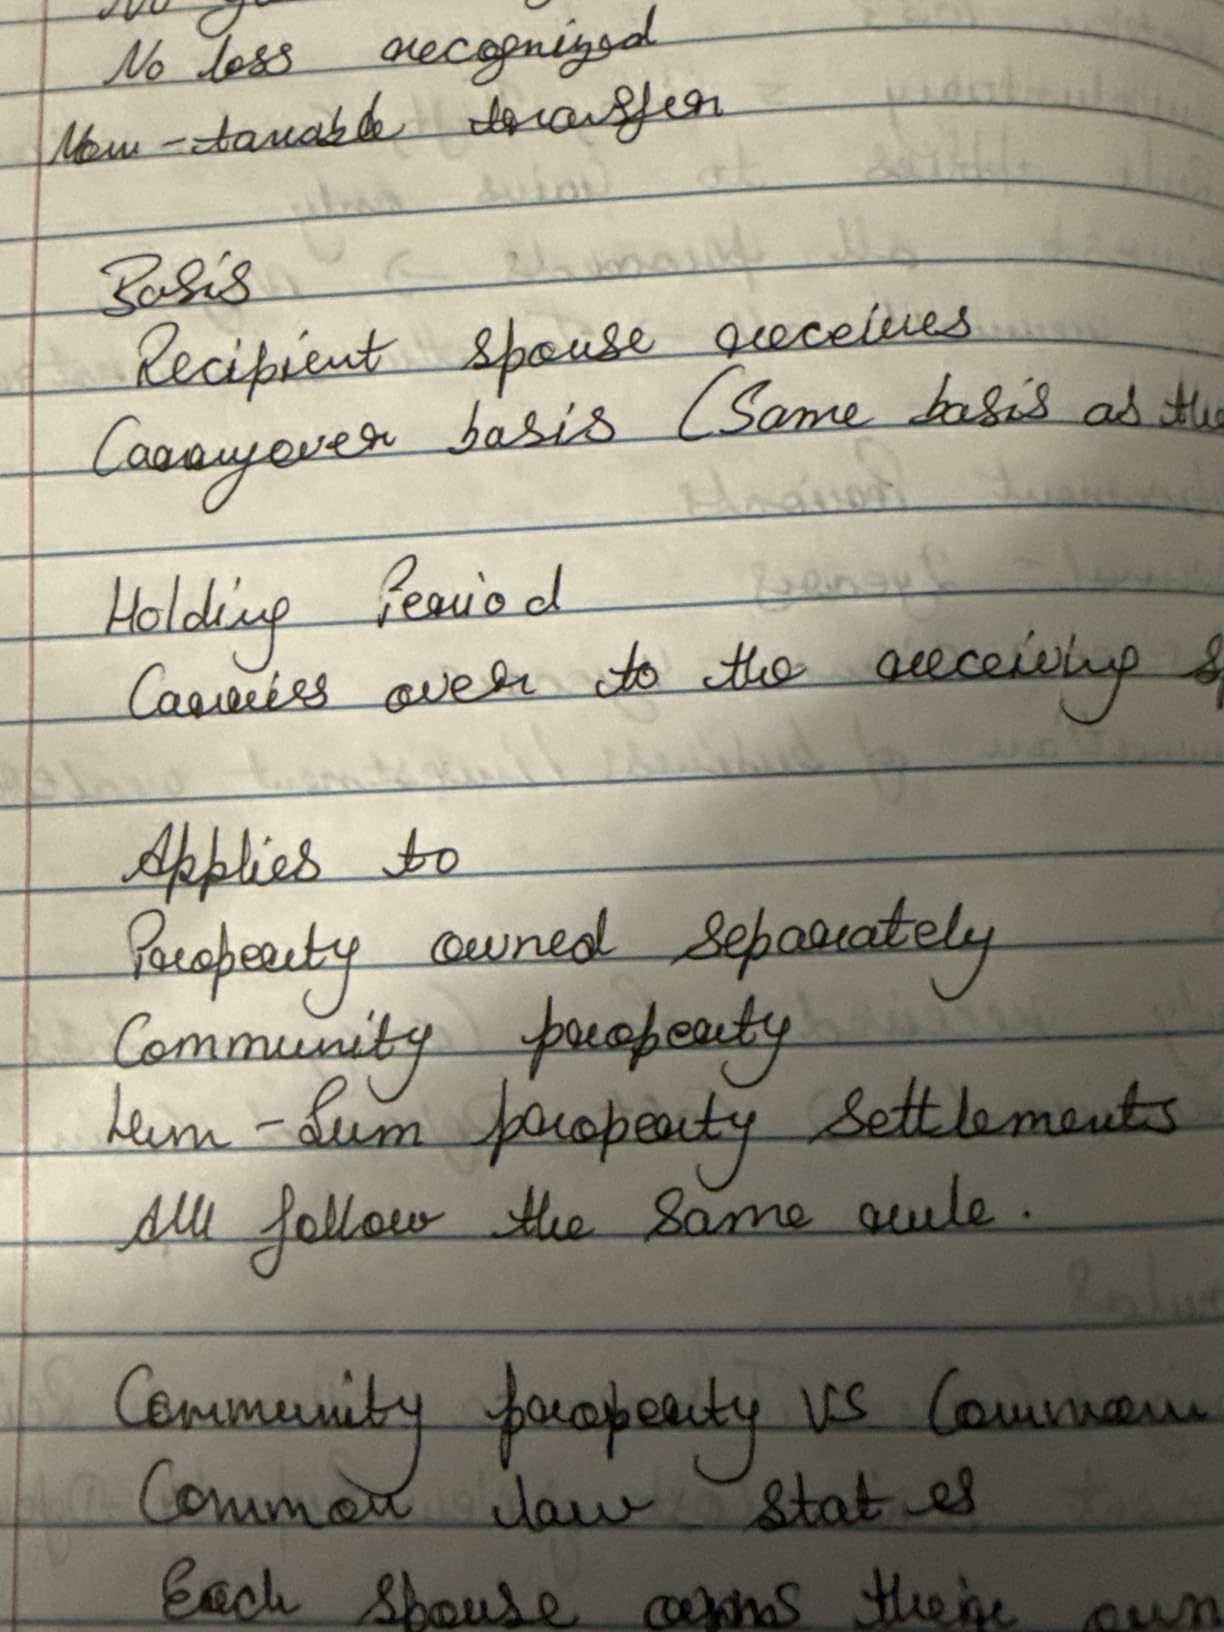 No
No loss recognized
Non-taxable transfer
Basis
Recipient spouse receives
Carryover basis (Same basis as the
Holding Period
Carries over to the receiving
Applies to
Property owned separately
Community property
Lum-Sum property settlements
All follow the same rule.
Community property VS Common
Common law states
Each spouse owns their own